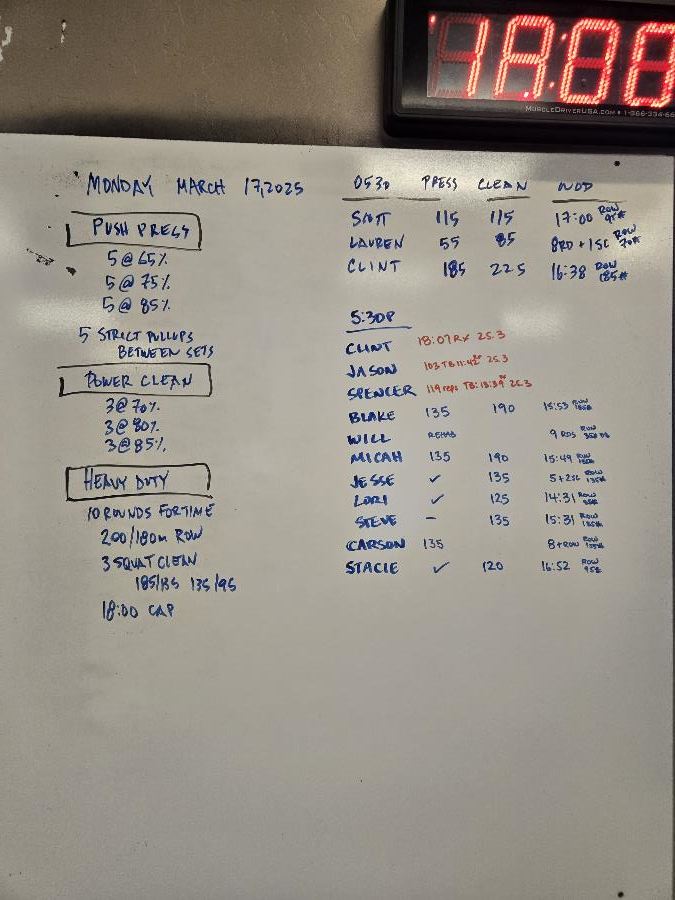 18:00
MUSCLEDRIVERUSA.COM • 1-866-334-66
MONDAY MARCH 17, 2025
PUSH PRESS
5 @ 65%
5 @ 75%
5 @ 85%
5 STRICT PULLUPS
BETWEEN SETS
POWER CLEAN
3 @ 70%
3 @ 80%
3 @ 85%
HEAVY DUTY
10 ROUNDS FOR TIME
200/180m ROW
3 SQUAT CLEAN
185/135 135/95
18:00 CAP
0530 PRESS CLEAN WOD
SCOTT 115 115 17:00 ROW 95#
LAUREN 55 85 8RD + 1SC ROW 70#
CLINT 185 225 16:38 ROW 185#
5:30P
CLINT 18:07 RX 25.3
JASON 103 TB 11:42 RX 25.3
SPENCER 119 reps TB: 13:39 RX 25.3
BLAKE 135 190 15:53 RUN
WILL REHAB 9 RDS RUN
MICAH 135 190 15:49 RUN
JESSE ✓ 135 5+2SC ROW 135#
LORI ✓ 125 14:31 ROW
STEVE – 135 15:31 ROW
CARSON 135 8+ROW ROW
STACIE ✓ 120 16:52 ROW 95#